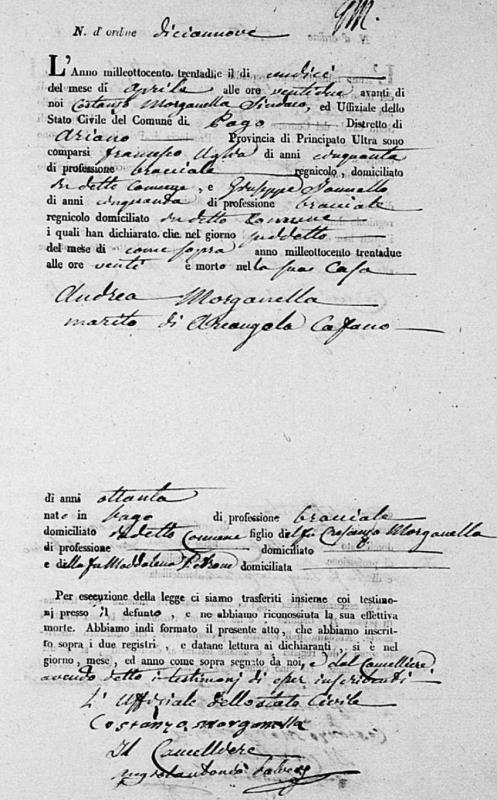 N. d'ordine diciannove
L'Anno milleottocento trentadue il dì undici
del mese di aprile alle ore ventidue avanti di
noi Costanzo Morganella Sindaco, ed Uffiziale dello
Stato Civile del Comune di Pago Distretto di
Ariano Provincia di Principato Ultra sono
comparsi Francesco di anni cinquanta
di professione bracciale regnicolo, domiciliato
in detto Comune, e Giuseppe Iannello
di anni cinquanta di professione bracciale
regnicolo domiciliato in detto Comune
i quali han dichiarato che nel giorno suddetto
del mese di come sopra anno milleottocento trentadue
alle ore venti è morto nella sua Casa
Andrea Morganella
marito di Arcangola Cafano
di anni ottanta
nato in Pago di professione bracciale
domiciliato in detto Comune figlio del fu Morganella
di professione domiciliato
e della fu Maddalena domiciliata
Per esecuzione della legge ci siamo trasferiti insieme coi testimo-
nj presso il defunto, e ne abbiamo riconosciuta la sua effettiva
morte. Abbiamo indi formato il presente atto, che abbiamo inscrit-
to sopra i due registri, e datane lettura ai dichiaranti, si è nel
giorno, mese, ed anno come sopra segnato da noi, e dal Cancelliere
avendo detto i testimonj di esser inscribenti
L'Uffiziale dello stato Civile
Costanzo Morganella
Il Cancelliere